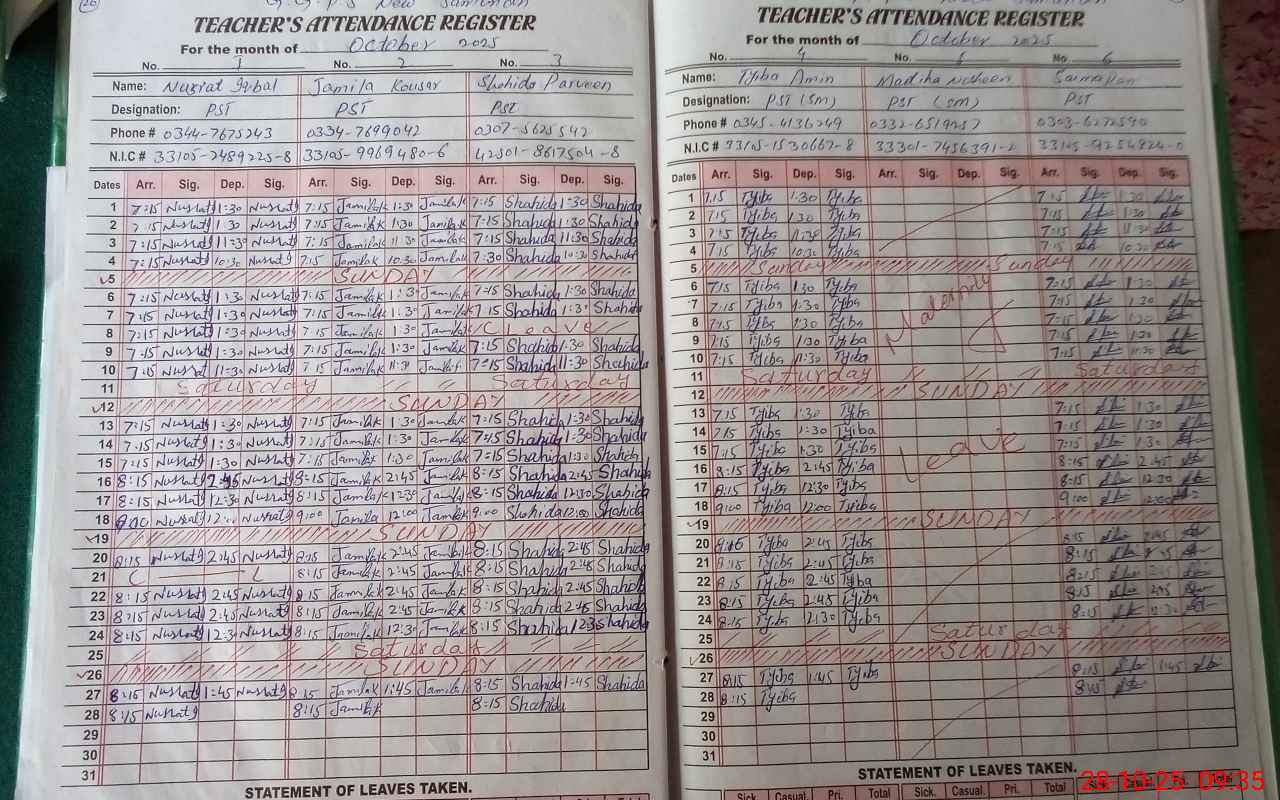 (26)
TEACHER'S ATTENDANCE REGISTER
For the month of October 2025
No. 1 No. 2 No. 3
Name: Nusrat Iqbal Jamila Kousar Shahida Parveen
Designation: PST PST PST
Phone # 0344-7675243 0334-7699042 0307-5625542
N.I.C # 33105-2489225-8 33105-9969480-6 42501-8617504-8
Dates Arr. Sig. Dep. Sig. Arr. Sig. Dep. Sig. Arr. Sig. Dep. Sig.
1 7:15 Nusrat 1:30 Nusrat 7:15 Jamilak 1:30 Jamilak 7:15 Shahida 1:30 Shahida
2 7:15 Nusrat 1:30 Nusrat 7:15 Jamilak 1:30 Jamilak 7:15 Shahida 1:30 Shahida
3 7:15 Nusrat 11:30 Nusrat 7:15 Jamilak 11:30 Jamilak 7:15 Shahida 11:30 Shahida
4 7:15 Nusrat 10:30 Nusrat 7:15 Jamilak 10:30 Jamilak 7:30 Shahida 10:30 Shahida
5 SUNDAY
6 7:15 Nusrat 1:30 Nusrat 7:15 Jamilak 1:30 Jamilak 7:15 Shahida 1:30 Shahida
7 7:15 Nusrat 1:30 Nusrat 7:15 Jamilak 1:30 Jamilak 7:15 Shahida 1:30 Shahida
8 7:15 Nusrat 1:30 Nusrat 7:15 Jamilak 1:30 Jamilak C Leave
9 7:15 Nusrat 1:30 Nusrat 7:15 Jamilak 1:30 Jamilak 7:15 Shahida 1:30 Shahida
10 7:15 Nusrat 11:30 Nusrat 7:15 Jamilak 11:30 Jamilak 7:15 Shahida 11:30 Shahida
11 Saturday Saturday
12 SUNDAY
13 7:15 Nusrat 1:30 Nusrat 7:15 Jamilak 1:30 Jamilak 7:15 Shahida 1:30 Shahida
14 7:15 Nusrat 1:30 Nusrat 7:15 Jamilak 1:30 Jamilak 7:15 Shahida 1:30 Shahida
15 7:15 Nusrat 1:30 Nusrat 7:15 Jamilak 1:30 Jamilak 7:15 Shahida 1:30 Shahida
16 8:15 Nusrat 2:45 Nusrat 8:15 Jamilak 2:45 Jamilak 8:15 Shahida 2:45 Shahida
17 8:15 Nusrat 12:30 Nusrat 8:15 Jamilak 12:30 Jamilak 8:15 Shahida 12:30 Shahida
18 Nusrat 12:00 Nusrat 9:00 Jamila 12:00 Jamilak 9:00 Shahida 12:00 Shahida
19 SUNDAY
20 8:15 Nusrat 2:45 Nusrat 8:15 Jamilak 2:45 Jamilak 8:15 Shahida 2:45 Shahida
21 C L 8:15 Jamilak 2:45 Jamilak 8:15 Shahida 2:45 Shahida
22 8:15 Nusrat 2:45 Nusrat 8:15 Jamilak 2:45 Jamilak 8:15 Shahida 2:45 Shahida
23 8:15 Nusrat 2:45 Nusrat 8:15 Jamilak 2:45 Jamilak 8:15 Shahida 2:45 Shahida
24 8:15 Nusrat 12:3 Nusrat 8:15 Jamilak 12:30 Jamilak 8:15 Shahida 12:3 Shahida
25 Saturday
26 SUNDAY
27 8:15 Nusrat 1:45 Nusrat 8:15 Jamilak 1:45 Jamilak 8:15 Shahida 1:45 Shahida
28 8:15 Nusrat 8:15 Jamilak 8:15 Shahida
29
30
31
STATEMENT OF LEAVES TAKEN.
TEACHER'S ATTENDANCE REGISTER
For the month of October 2025
No. 4 No. 5 No. 6
Name: Tyiba Amin Madiha Nosheen
Designation: PST (SM) PST (SM) PST
Phone # 0345-4136249 0332-6519257 0303-6272590
N.I.C # 33105-1530667-8 33301-7456391-2 33105-9254824-0
Dates Arr. Sig. Dep. Sig. Arr. Sig. Dep. Sig. Arr. Sig. Dep. Sig.
1 7:15 Tyiba 1:30 Tyiba 7:15 1:30
2 7:15 Tyiba 1:30 Tyiba 7:15 1:30
3 7:15 Tyiba 11:30 Tyiba 7:15 11:30
4 7:15 Tyiba 10:30 Tyiba 7:15 10:30
5 Sunday Sunday
6 7:15 Tyiba 1:30 Tyiba 7:15 1:30
7 7:15 Tyiba 1:30 Tyiba Maternity 7:15 1:30
8 7:15 Tyiba 1:30 Tyiba 7:15 1:30
9 7:15 Tyiba 1:30 Tyiba 7:15 1:30
10 7:15 Tyiba 11:30 Tyiba 7:15 11:30
11 Saturday Saturday
12 SUNDAY
13 7:15 Tyiba 1:30 Tyiba 7:15 1:30
14 7:15 Tyiba 1:30 Tyiba 7:15 1:30
15 7:15 Tyiba 1:30 Tyiba Leave 7:15 1:30
16 8:15 Tyiba 2:45 Tyiba 8:15 2:45
17 8:15 Tyiba 12:30 Tyiba 8:15 12:30
18 9:00 Tyiba 12:00 Tyiba 9:00 12:00
19 SUNDAY
20 Tyiba 2:45 Tyiba 8:15 2:45
21 8:15 Tyiba 2:45 Tyiba 8:15
22 8:15 Tyiba 2:45 Tyiba 8:15 2:45
23 8:15 Tyiba 2:45 Tyiba 8:15 2:45
24 8:15 Tyiba 12:30 Tyiba 8:15 12:30
25 Saturday
26 SUNDAY
27 8:15 Tyiba 1:45 Tyiba 8:15 1:45
28 8:15 Tyiba 8:15
29
30
31
STATEMENT OF LEAVES TAKEN.
Sick. Casual. Pri. Total Sick. Casual. Pri. Total
28-10-25 09:35